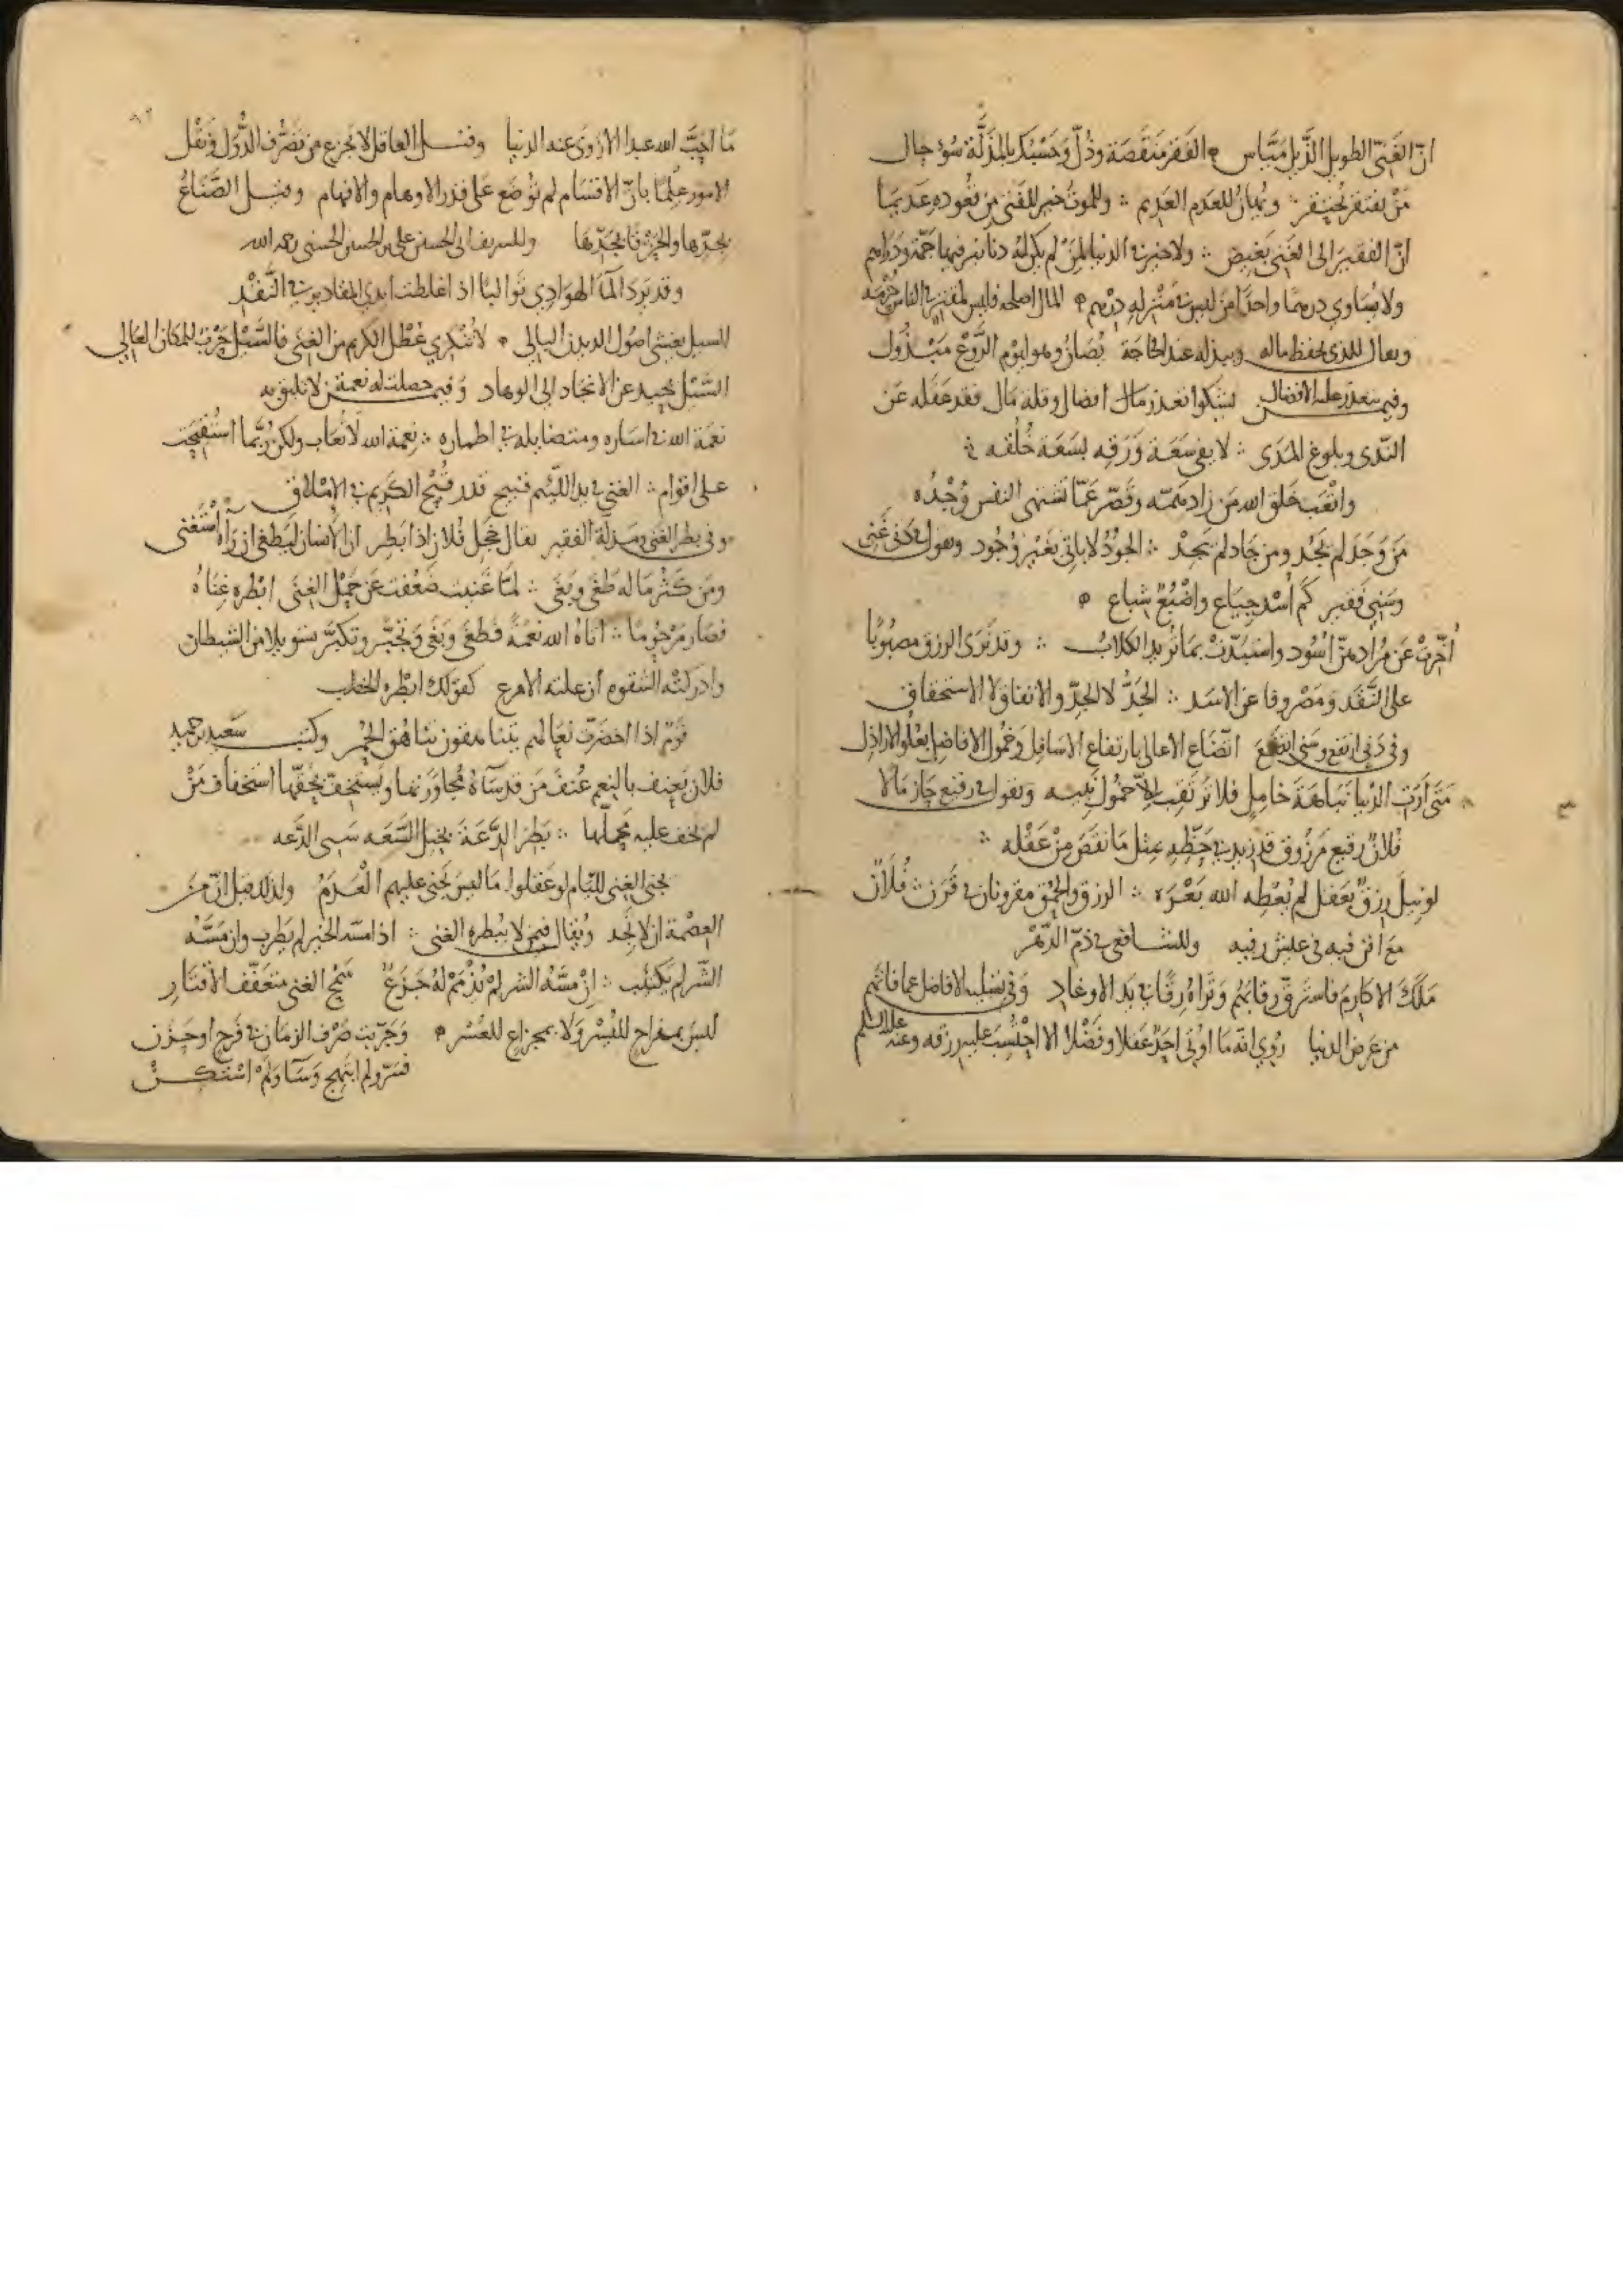 انّ الغَنيّ الطويل الذَّيل مَيّاس ۞ الفَقر مَنقَصَة وذُلّ وَحَسْبُكَ بالمَذَلَّة سُوْ حال
مَنْ يفتقر يُحتقر ∴ ويُهانُ للعَدَم العَديم ∴ وللموتُ خير للفَتى من قُعوده عَديمًا
انّ الفقيرَ الى الغَني بَغيض ∴ ولا خير في الدنيا لمَنْ لم يكن له دنانير فيها جَمّة ودَراهم
ولا يُسَاوي درهمًا واحدًا مَن ليس في مَنْزله دِرْهم ۞ المال اصلحه فليس لمُقتِر في الناس حُرْمَه
ويقال للذي يحفظ ماله ويبذله عند الحاجة يُصَانُ وهو ليوم الرَّوْع مَبْذُول
وفيمن يتعذر عليه الافضال يشكوا تعذر مال افضال وقلة مال فقد عَقَله عَن
النّدى وبلوغ المَدَى ∴ لا يفي سَعَة وَرَقه بسَعَة خُلُقه ∴
واتْعَب خَلق الله مَن زاد هَمّه وقَصّر عَمّا تَشتهي النفس وُجْدُه
مَن وَجَدَ لم يَجُد ومن جَاد لم يَجِدْ ∴ الجُوْدُ لا ياتي بغَيْر وُجُود ويقول في دَني غَني
وسَني فَقير كَم اُسْد جياع واضْبُعٌ شباع ۞
اُخّرَتْ عَن مُرادِهنّ اُسُود واستبَدّتْ بما تُريد الكلابُ ∴ وقد نَرَى الرزق مصبُوبًا
على النَّقَد وَمَصْروفا عن الاسَد ∴ الجَدُّ لا الجِدّ والاتفاق لا الاستحقاق
وفي دَني ارتفع وسَني اتضع اتّضاع الاعالي بارتفاع الاسَافِل وخمُول الافاضِل بعُلُو الاراذِل
مَتى اَرَتِ الدُنيا نَبَاهَةَ خامِل فلا تَرتَقِب الاّ خُمُول نَبيه ويقول في رقيع حَازَ مَالا
فُلانٌ رقيع مَرْزوق قد زيد في حَظِّه بمثل مَا نَقَصَ مِنْ عَقْله ∴
لو نيلَ رِزقٌ بعَقل لم يُعْطِه الله بَعْرَه ∴ الرزق والحُمْق مقرونان في قَرَن ∴ فُلَانٌ
مَع افن فيه في عليش رفيه وللشافعي في ذمّ الدّهْر
مَلَكَ الاكارِمَ فاستَرقّ رِقابَهُم وَتَراهُ رِقًّا في يَد الاوغادِ وَفي تسليه الافاضل عما فاتهم
من عَرض الدنيا رُوي انّه مَا اوُتي اَحَدٌ عَقلا وفَضْلا الا احْتُسِبَ عليه رزقه وعنه عليه السلم
مَا اَحَبَّ الله عبدا الا زَوَى عنه الدنيا وقيل العاقل لا يَجزع من تَصَرُّف الدُّوَل وَتَنَقُّل
الامور عِلْمًا بانّ الاقسَام لم تُوْضَع عَلى قدر الاوهام والافهام وقيل الصَّنَاعُ
وللشريف ابي الحسن علي بن الحسن الحسني رحمه الله
وقد يَرد المآ الهوَادِي تَوَاليًا اذا غلطت ايدي المقادير في النَّقْدِ
لا تُنْكِري عُطْل الكريم من الغِنى فالسَّيْل حَرْبٌ للمكان العَالي
السَّيْل يَحيد عن الانجاد الى الوهاد وَفيمن حصلت له نعمة من لا تليق به
نعمَة الله ∴ نِعمَة الله لَا تُعَاب ولكن رُبّما استُقبِحَت
عَلى اقوام ∴ الغني في يد اللئيم قبيح قدر قُبْح الكريم في الاِمْلَاق
وفي بطر الغني ومذلة الفقير يقال حجل فُلَان اذا بَطِر انّ الانسان ليَطغى اَن رَاهُ استَغنى
ومَن كَثُر مَا له طَغَى وبَغَى ∴ لمّا غَنيت ضَعُفت عَن حَمْل الغِنَى ابْطره غِنَاهُ
فصَار مَرحُومًا ∴ اتاهُ الله نعمَةً فطغَى وَبَغَى وَتَجَبّر وتكبَّر بتسويل من الشيطان
وادركته الشقوه
قَوْمٌ اذا اخضَرّت نعَالهم يتناهقون تناهُق الحُمُر وكتب سَعيد بن حميد
فلان يَعنِف بالنعم عُنفَ مَن قد سَآهُ مُجاوَرَتها ويَستخف بحَقّها استخفاف مَنْ
لم يخف عليه مَحملها ∴
يجني الغِنى للئام لو عَقلوا مَا ليسَ يَجني عليهم العَدَمُ ولذلك قيل انّ من
العِصْمة ان لا تَجد وُيقال فيمن لا يُبطره الغنى ∴ اذا مسّه الخير لم يَطرب وان مَسَّهُ
الشّر لم يَكتئب ∴ اِنْ مسَّهُ الشر لمْ يُذْمَمْ لهُ جَزَعٌ سَمْحُ الغِنى متَعَفّف الاقتَارِ
ليسَ بمفراحٍ لليُسْر وَلا بمجزاعٍ للعُسْر ۞ وَجَرّبت صَرْف الزمَان في فَرَحٍ او حَزَن
فسَرّ ولم ابتهج وَسَآ وَلَمْ اسْتَكِنْ